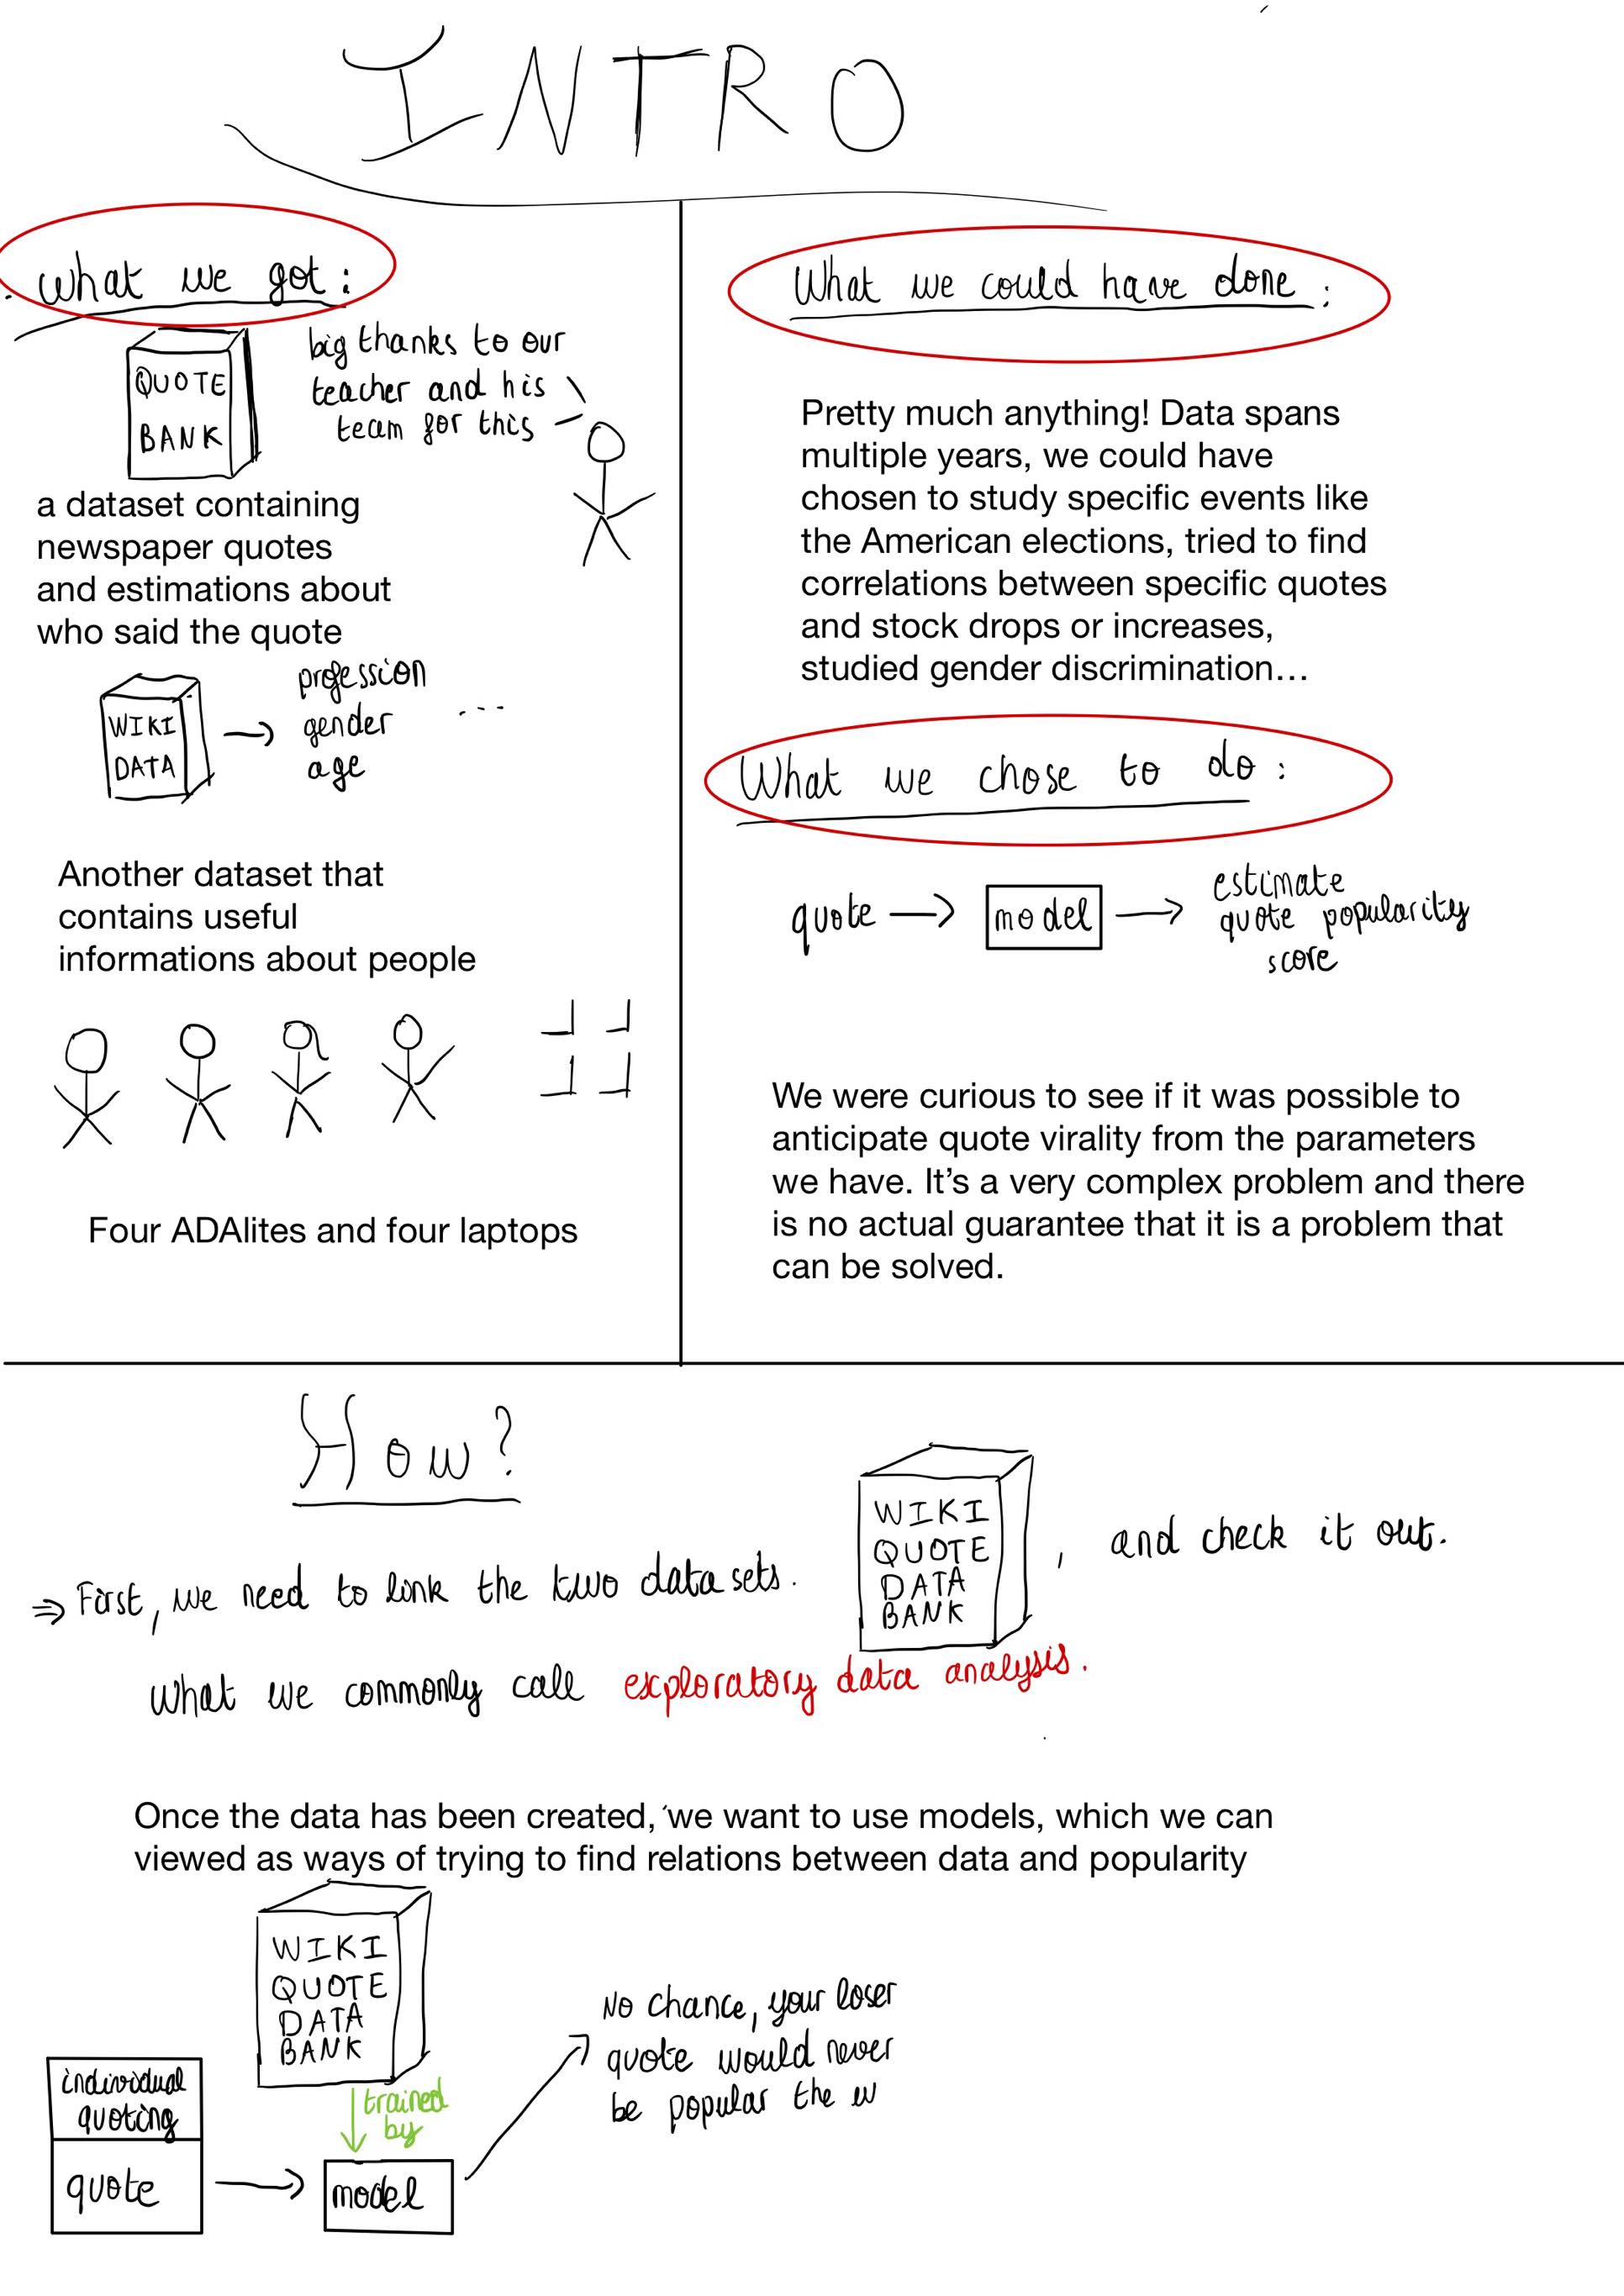 INTRO
What we got:
QUOTE
BANK
big thanks to our
teacher and his
team for this
a dataset containing
newspaper quotes
and estimations about
who said the quote
WIKI
DATA
profession
gender ...
age
Another dataset that
contains useful
informations about people
Four ADAlites and four laptops
What we could have done:
Pretty much anything! Data spans
multiple years, we could have
chosen to study specific events like
the American elections, tried to find
correlations between specific quotes
and stock drops or increases,
studied gender discrimination…
What we chose to do:
quote → model → estimate
quote popularity
score
We were curious to see if it was possible to
anticipate quote virality from the parameters
we have. It's a very complex problem and there
is no actual guarantee that it is a problem that
can be solved.
How?
⇒ First, we need to link the two data sets.
WIKI
QUOTE
DATA
BANK
, and check it out.
What we commonly call exploratory data analysis.
Once the data has been created, we want to use models, which we can
viewed as ways of trying to find relations between data and popularity
WIKI
QUOTE
DATA
BANK
trained
by
individual
quoting
quote → model
No chance, your loser
quote would never
be popular the w